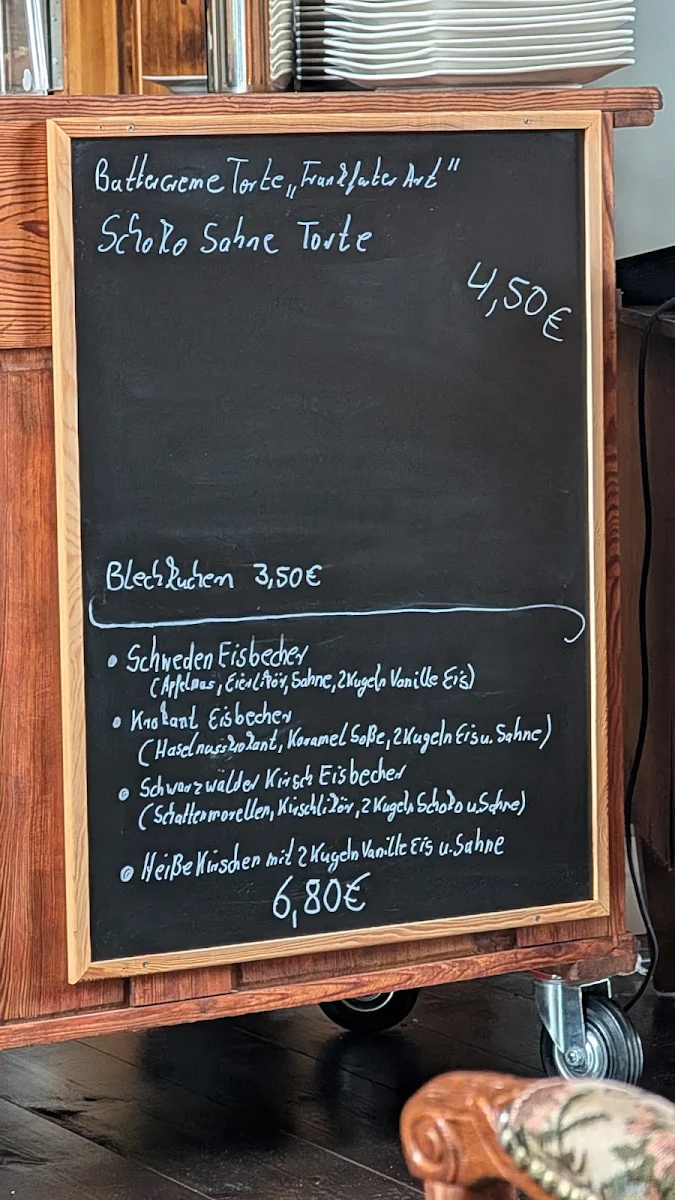 Buttercreme Torte „Frankfurter Art"
Schoko Sahne Torte
4,50€
Blechkuchen 3,50€
• Schweden Eisbecher
(Apfelmus, Eierlikör, Sahne, 2 Kugeln Vanille Eis)
• Krokant Eisbecher
(Haselnusskrokant, Karamel Soße, 2 Kugeln Eis u. Sahne)
• Schwarzwälder Kirsch Eisbecher
(Schattenmorellen, Kirschlikör, 2 Kugeln Schoko u. Sahne)
• Heiße Kirschen mit 2 Kugeln Vanille Eis u. Sahne
6,80€